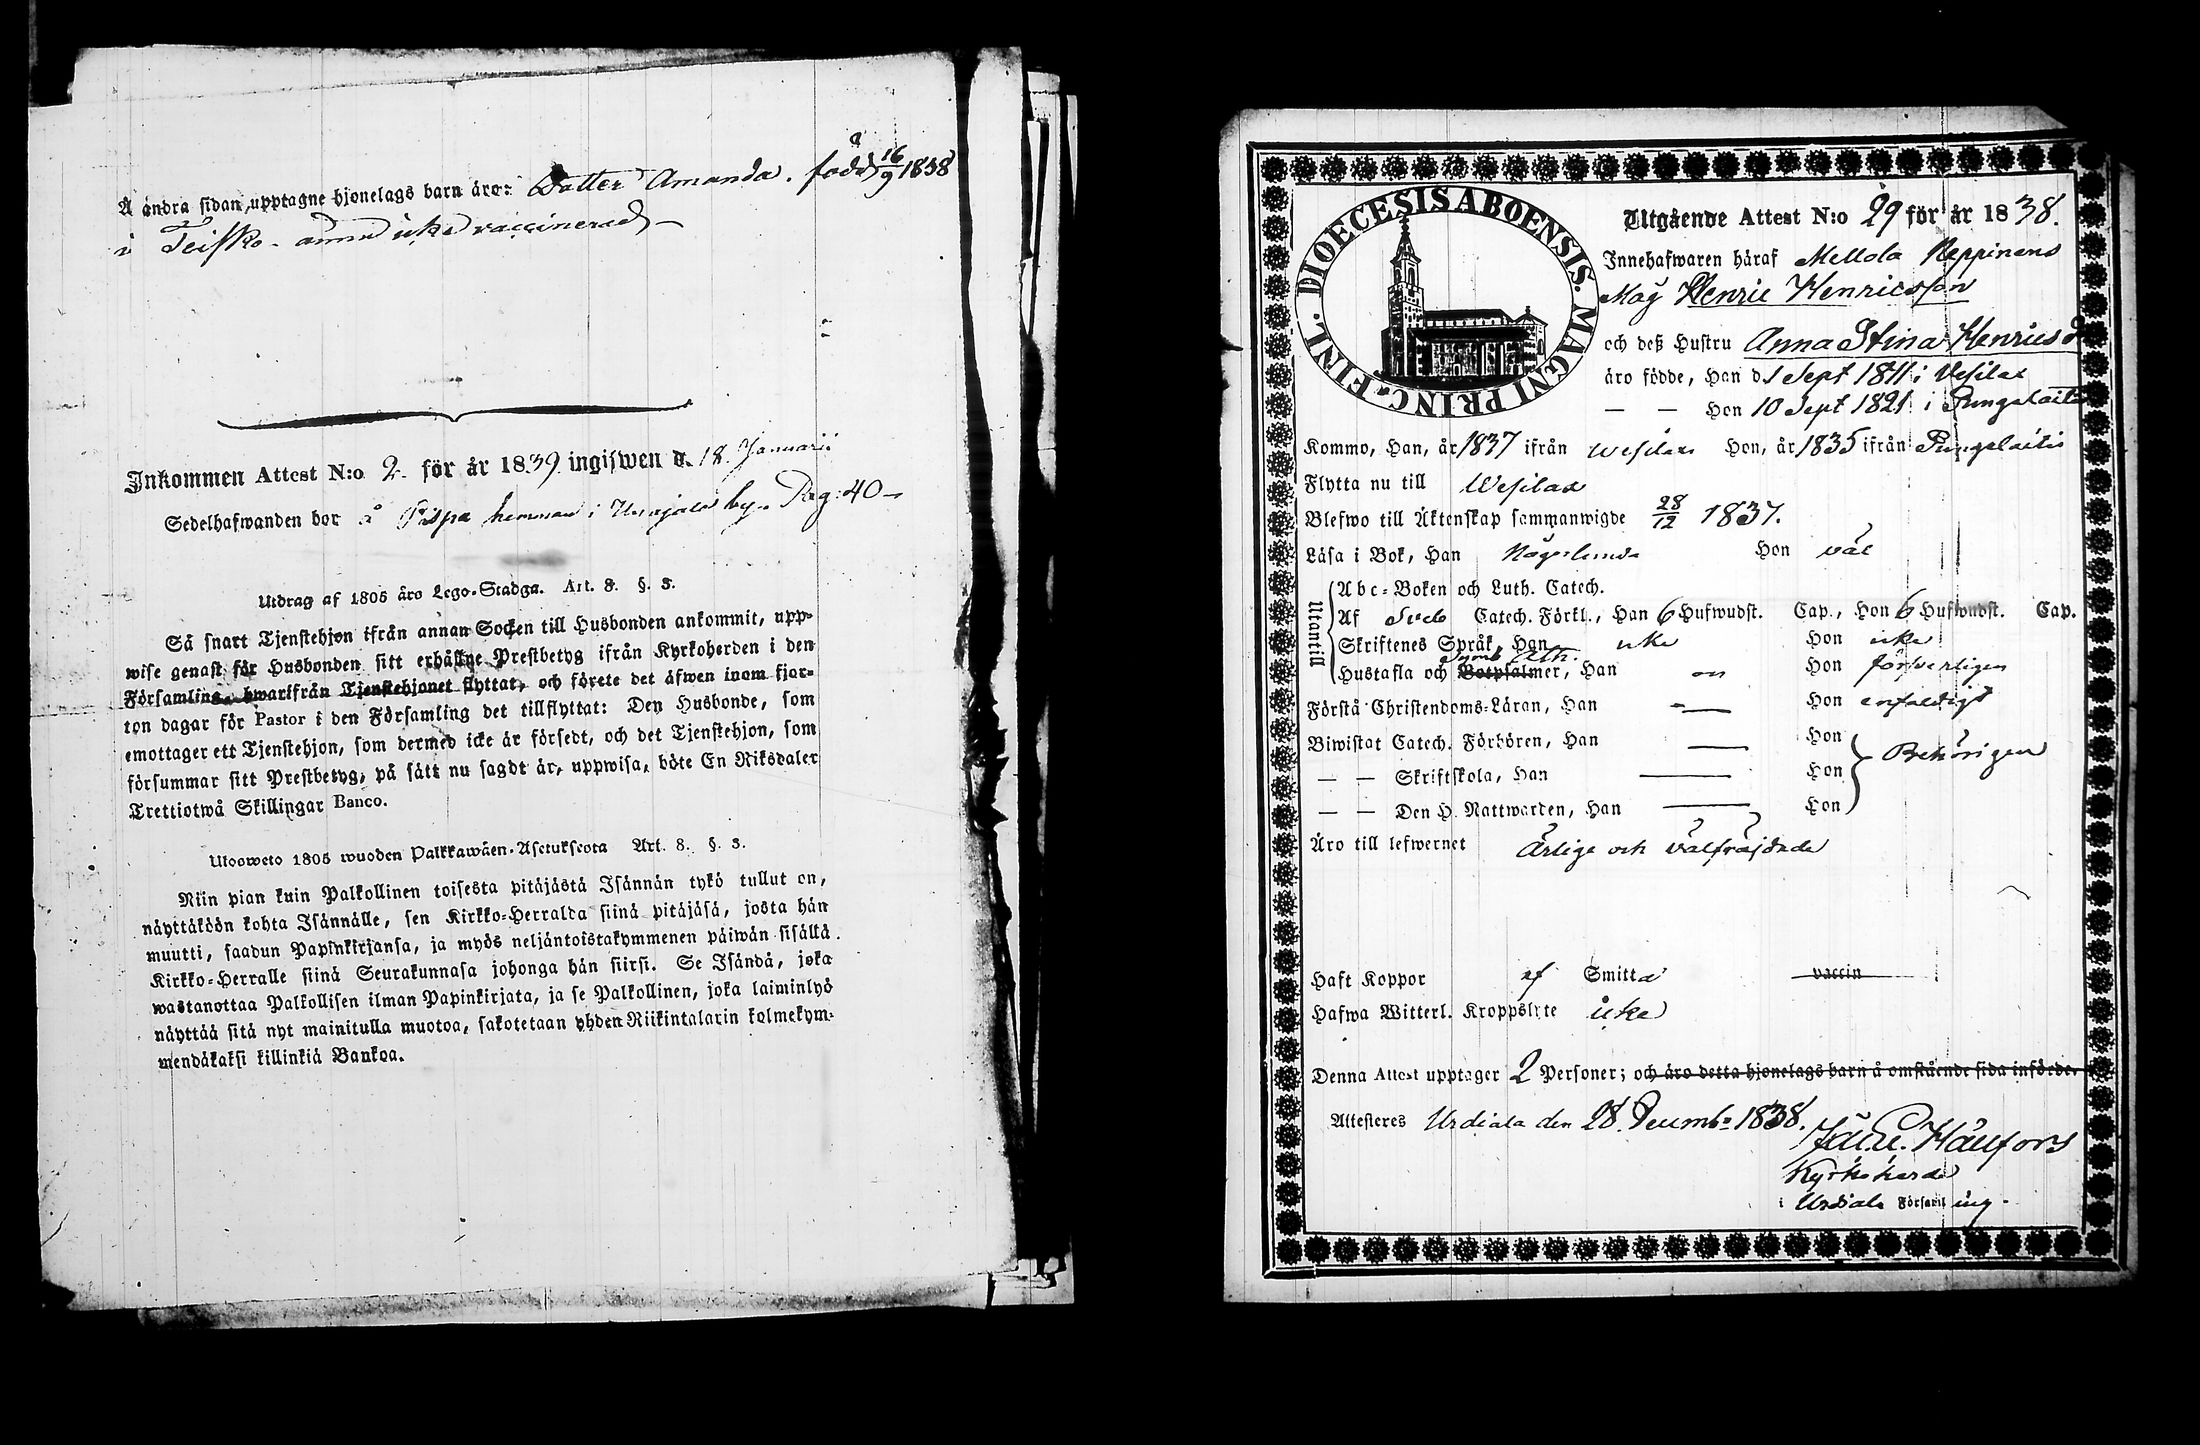 Å andra sidan upptagne hjonelags barn äro: Dotter Amanda. född 16/9 1838
i Teisko - ännu icke vaccinerad -
Inkommen Attest N:o 2. för år 1839 ingifwen d. 18 Januarii
Sedelhafwanden bor å Pispa hemman i by. Pag: 40 -
Utdrag af 1805 åro Lego-Stadga. Art. 8. §. 3.
Så snart Tjenstehjon ifrån annan Socken till Husbonden ankommit, upp-
wise genast för Husbonden sitt erhållne Prestbetyg ifrån Kyrkoherden i den
Församling, hwarifrån Tjenstehjonet flyttat, och förete det äfwen inom fjor-
ton dagar för Pastor i den Församling det tillflyttat: Den Husbonde, som
emottager ett Tjenstehjon, som dermed icke är försedt, och det Tjenstehjon, som
försummar sitt Prestbetyg, på sätt nu sagdt är, uppwisa, böte En Riksdaler
Trettiotwå Skillingar Banco.
Ulosweto 1805 wuoden Palkkawäen-Asetuksesta Art. 8. §. 3.
Niin pian kuin Palkollinen toisesta pitäjästä Isännän tykö tullut on,
näyttäköön kohta Isännälle, sen Kirkko-Herralda siinä pitäjäsä, josta hän
muutti, saadun Papinkirjansa, ja myös neljäntoistakymmenen päiwän sisällä
Kirkko-Herralle siinä Seurakunnasa johonga hän siirsi. Se Isändä, joka
wastanottaa Palkollisen ilman Papinkirjata, ja se Palkollinen, joka laiminlyö
näyttää sitä nyt mainitulla muotoa, sakotetaan yhden Riikintalarin kolmekym-
mendäkaksi killinkiä Bankoa.
DIOECESIS ABOENSIS. MAGNI PRINC. FINL.
Utgående Attest N:o 29 för år 1838.
Innehafwaren häraf Mellola Reppinens
Måg Henric Henricsson
och deß Hustru Anna Stina Henricsd
äro födde, Han d. 1 Sept 1811 i Vesilax
— — Hon 10 Sept 1821 i Pungalaitio
Kommo, Han, år 1837 ifrån Wesilax Hon, år 1835 ifrån Pungalaitio
Flytta nu till Wesilax
Blefwo till Äktenskap sammanwigde 28/12 1837.
Läsa i Bok, Han Någorlunda Hon väl
Utantill
Abc-Boken och Luth. Catech.
Af Sveb Catech. Förkl., Han 6 Hufwudst. Cap., Hon 6 Hufwudst. Cap.
Skriftenes Språk, Han icke Hon icke
Symb. Ath.
Hustafla och Botpsalmer, Han Hon försvarligen
Förstå Christendoms-Läran, Han — Hon enfaldigt
Biwistat Catech. Förhören, Han — Hon
— — Skriftskola, Han — Hon Behörigen
— — Den H. Nattwarden, Han — Hon
Äro till lefwernet Ärlige och välfräjdade
Haft Koppor af Smitta vaccin
Hafwa Witterl. Kroppslyte icke
Denna Attest upptager 2 Personer; och äro detta hjonelags barn å omstående sida införde.
Attesteres Urdiala den 28 Decemb: 1838.
Kyrkoherde
i Urdiala Församling.